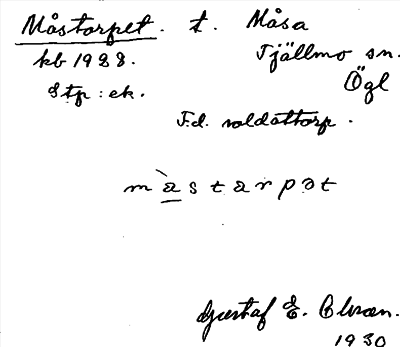 Måstorpet. t. Måsa
kb 1928. Tjällmo sn.
Stp: ek. Ögl
F.d. soldattorp.
m à s t a r p ə t
Gustaf E.
1930